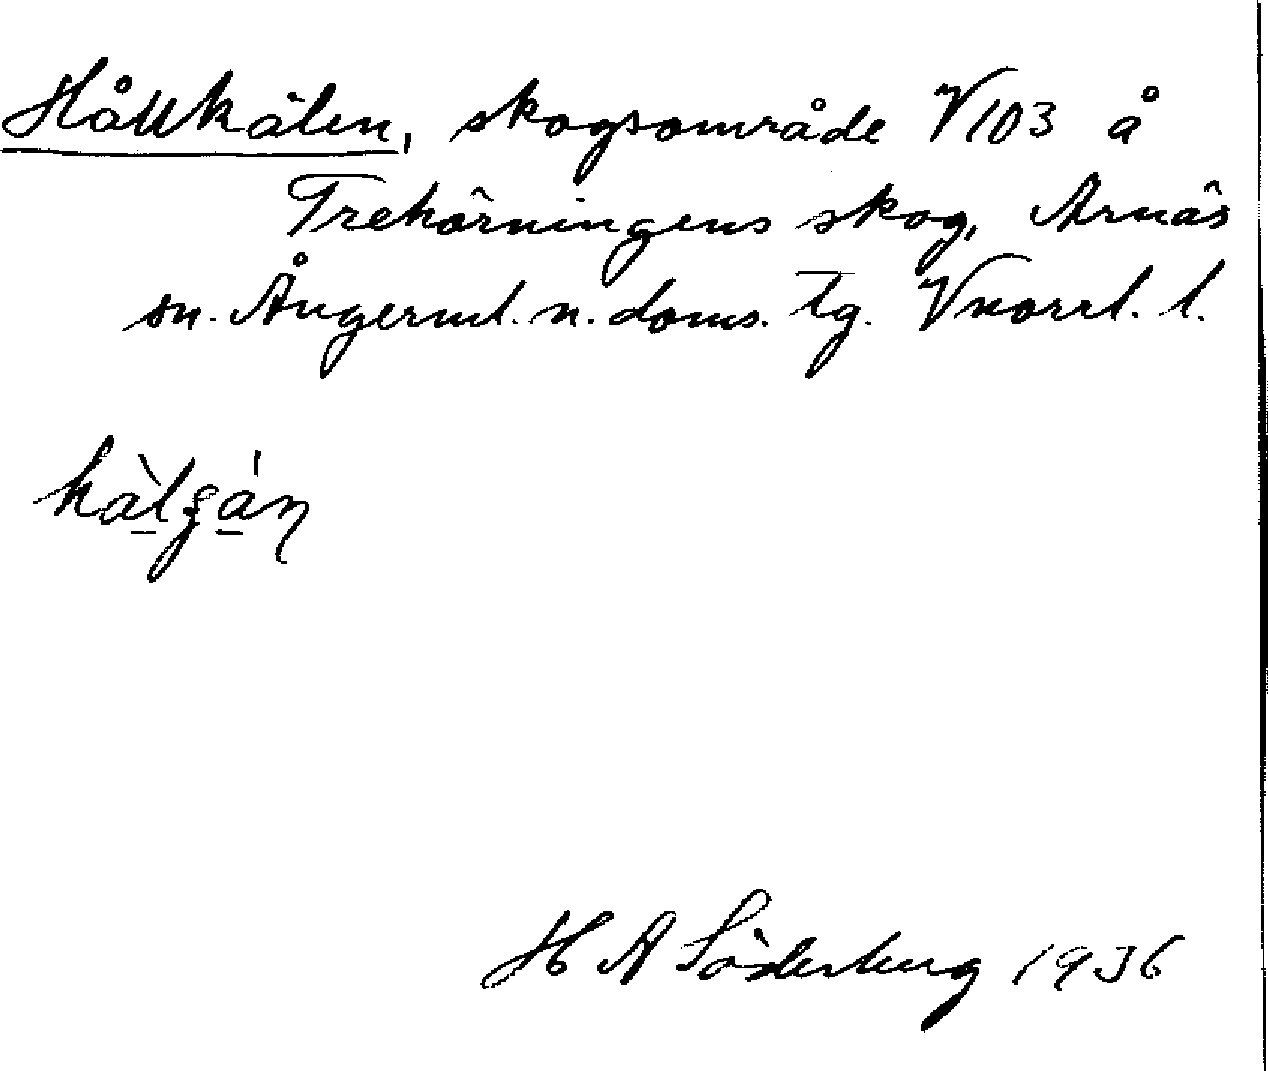 Hållkälen, skogsområde V103 å
Trehörningens skog, Arnäs
sn. Ångerml. n. doms. tg. Vnorrl. l.
H A Söderberg 1936